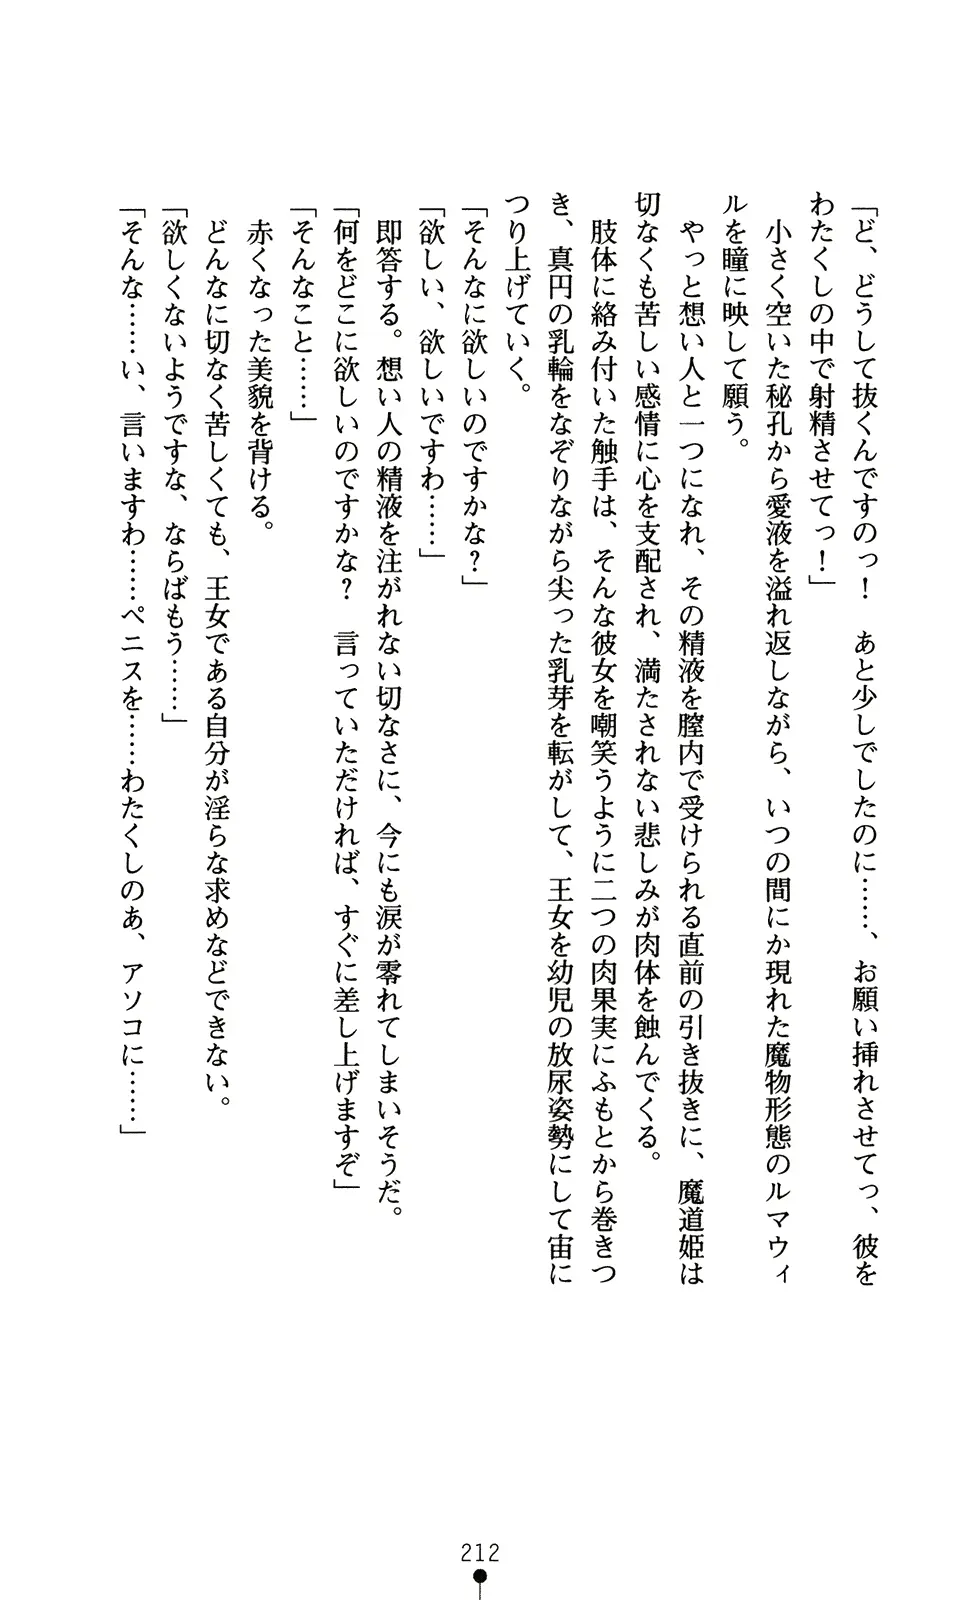 「ど、どうして抜くんですのっ！　あと少しでしたのに……、お願い挿れさせてっ、彼を
わたくしの中で射精させてっ！」
　小さく空いた秘孔から愛液を溢れ返しながら、いつの間にか現れた魔物形態のルマウィ
ルを瞳に映して願う。
　やっと想い人と一つになれ、その精液を膣内で受けられる直前の引き抜きに、魔道姫は
切なくも苦しい感情に心を支配され、満たされない悲しみが肉体を蝕んでくる。
　肢体に絡み付いた触手は、そんな彼女を嘲笑うように二つの肉果実にふもとから巻きつ
き、真円の乳輪をなぞりながら尖った乳芽を転がして、王女を幼児の放尿姿勢にして宙に
つり上げていく。
「そんなに欲しいのですかな？」
「欲しい、欲しいですわ……」
　即答する。想い人の精液を注がれない切なさに、今にも涙が零れてしまいそうだ。
「何をどこに欲しいのですかな？　言っていただければ、すぐに差し上げますぞ」
「そんなこと……」
　赤くなった美貌を背ける。
　どんなに切なく苦しくても、王女である自分が淫らな求めなどできない。
「欲しくないようですな、ならばもう……」
「そんな……い、言いますわ……ペニスを……わたくしのあ、アソコに……」
212